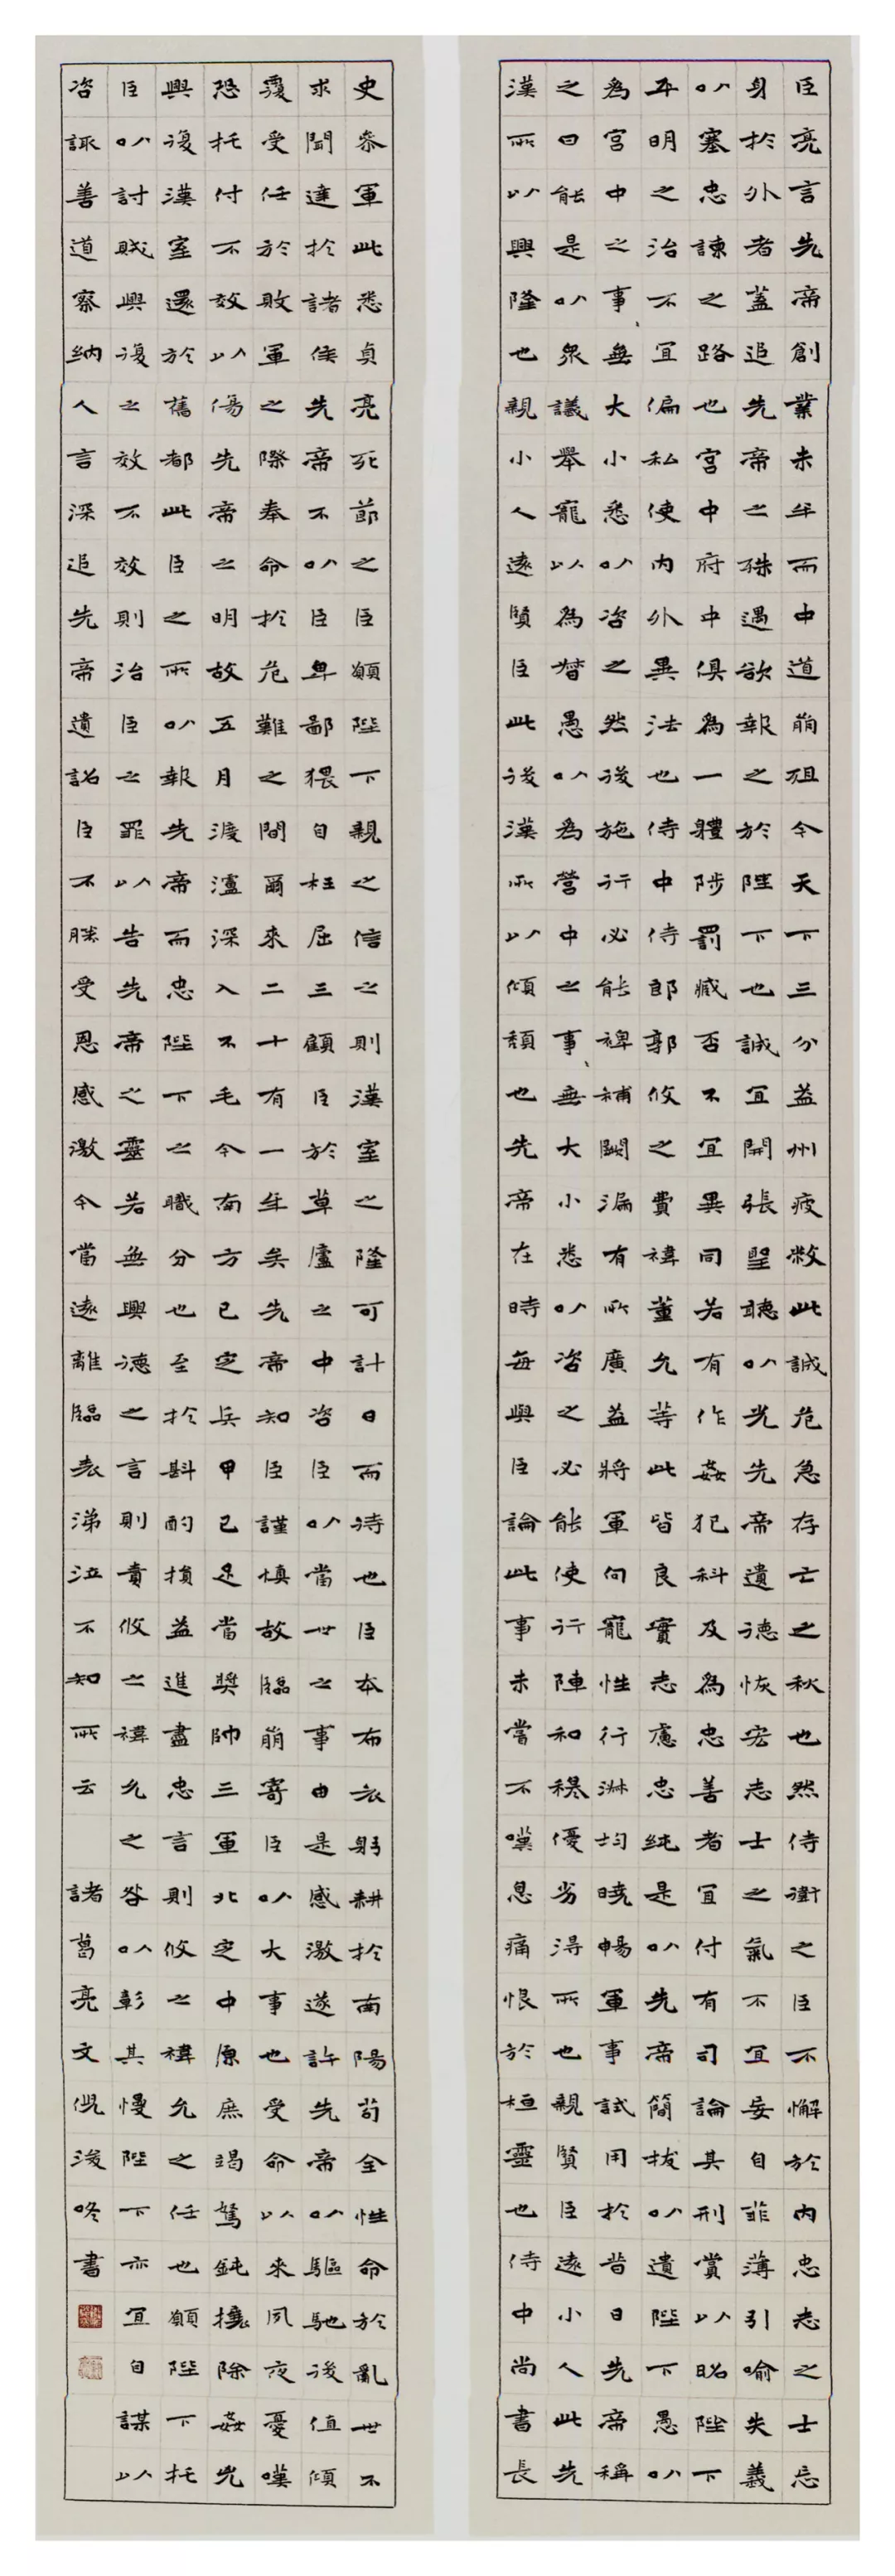 臣亮言先帝創業未半而中道崩殂今天下三分益州疲敝此誠危急存亡之秋也然侍衛之臣不懈於內忠志之士忘
身於外者蓋追先帝之殊遇欲報之於陛下也誠宜開張聖聽以光先帝遺德恢宏志士之氣不宜妄自菲薄引喻失義
以塞忠諫之路也宮中府中俱為一體陟罰臧否不宜異同若有作姦犯科及為忠善者宜付有司論其刑賞以昭陛下
平明之治不宜偏私使內外異法也侍中侍郎郭攸之費禕董允等此皆良實志慮忠純是以先帝簡拔以遺陛下愚以
為宮中之事無大小悉以咨之然後施行必能裨補闕漏有所廣益將軍向寵性行淑均曉暢軍事試用於昔日先帝稱
之曰能是以眾議舉寵以為督愚以為營中之事無大小悉以咨之必能使行陣和穆優劣得所也親賢臣遠小人此先
漢所以興隆也親小人遠賢臣此後漢所以傾頹也先帝在時每與臣論此事未嘗不嘆息痛恨於桓靈也侍中尚書長
史參軍此悉貞亮死節之臣願陛下親之信之則漢室之隆可計日而待也臣本布衣躬耕於南陽苟全性命於亂世不
求聞達於諸侯先帝不以臣卑鄙猥自枉屈三顧臣於草廬之中咨臣以當世之事由是感激遂許先帝以驅馳後值傾
覆受任於敗軍之際奉命於危難之間爾來二十有一年矣先帝知臣謹慎故臨崩寄臣以大事也受命以來夙夜憂嘆
恐托付不效以傷先帝之明故五月渡瀘深入不毛今南方已定兵甲已足當獎帥三軍北定中原庶竭駑鈍攘除姦兇
興復漢室還於舊都此臣之所以報先帝而忠陛下之職分也至於斟酌損益進盡忠言則攸之禕允之任也願陛下托
臣以討賊興復之效不效則治臣之罪以告先帝之靈若無興德之言則責攸之禕允之咎以彰其慢陛下亦宜自謀以
咨諏善道察納人言深追先帝遺詔臣不勝受恩感激今當遠離臨表涕泣不知所云 諸葛亮文書